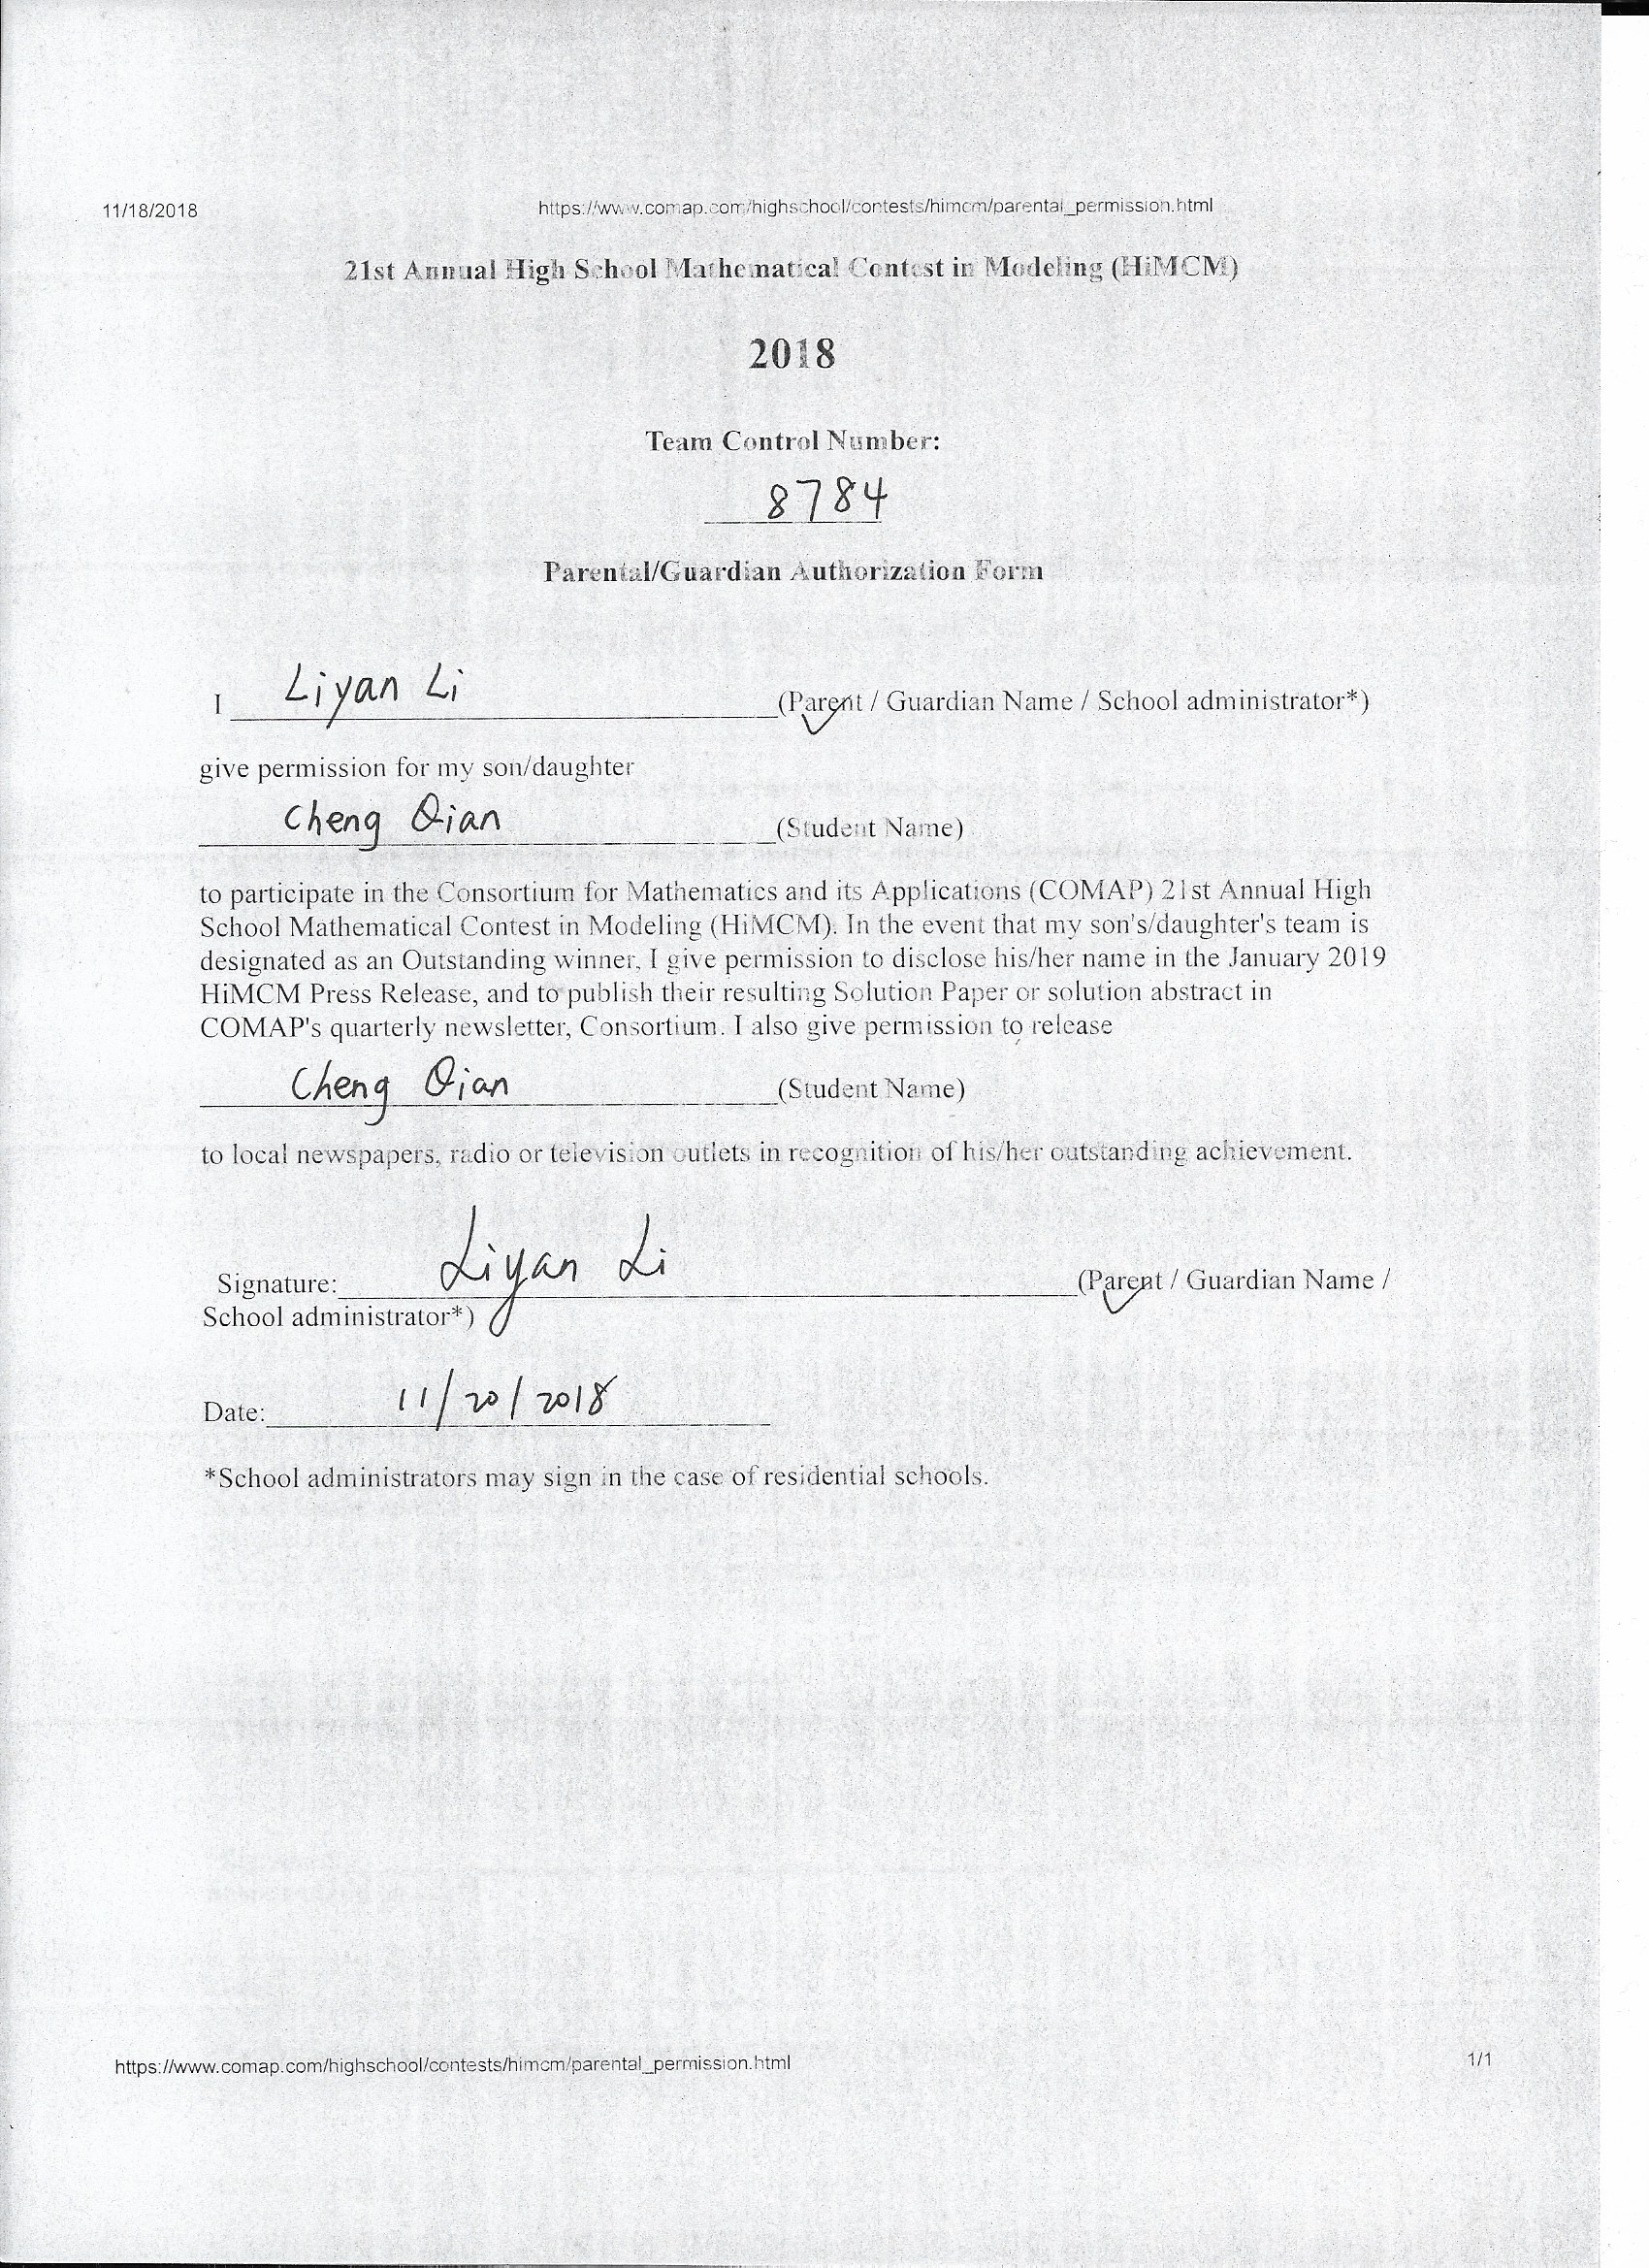 11/18/2018 https://www.comap.com/highschool/contests/himcm/parental_permission.html
21st Annual High School Mathematical Contest in Modeling (HiMCM)
2018
Team Control Number:
8784
Parental/Guardian Authorization Form
I Liyan Li (Parent / Guardian Name / School administrator*)
give permission for my son/daughter
Cheng Qian (Student Name)
to participate in the Consortium for Mathematics and its Applications (COMAP) 21st Annual High
School Mathematical Contest in Modeling (HiMCM). In the event that my son's/daughter's team is
designated as an Outstanding winner, I give permission to disclose his/her name in the January 2019
HiMCM Press Release, and to publish their resulting Solution Paper or solution abstract in
COMAP's quarterly newsletter, Consortium. I also give permission to release
Cheng Qian (Student Name)
to local newspapers, radio or television outlets in recognition of his/her outstanding achievement.
Signature: Liyan Li (Parent / Guardian Name /
School administrator*)
Date: 11/20/2018
*School administrators may sign in the case of residential schools.
https://www.comap.com/highschool/contests/himcm/parental_permission.html 1/1